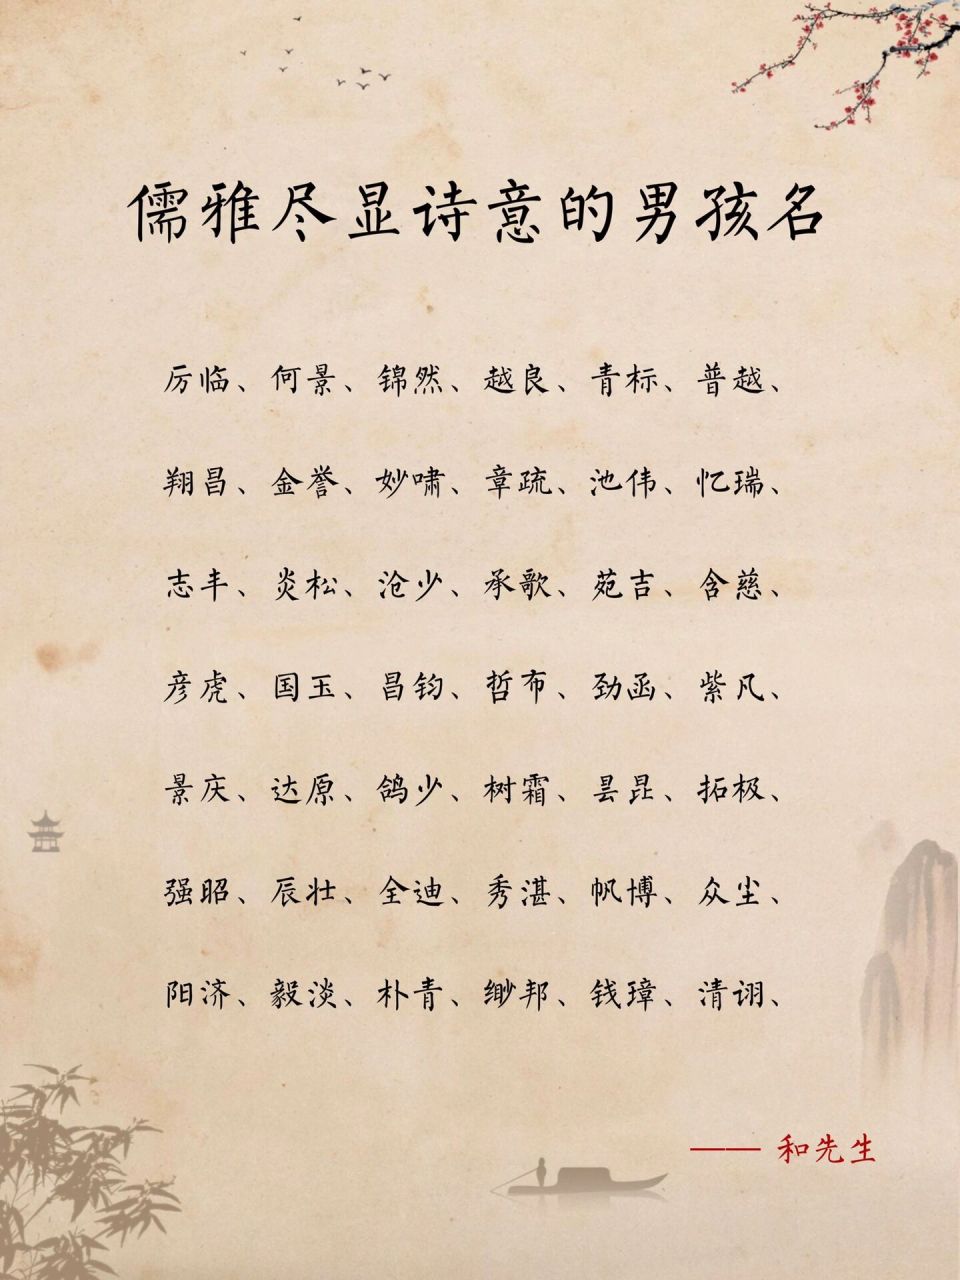 儒雅尽显诗意的男孩名
厉临、何景、锦然、越良、青标、普越、
翔昌、金誉、妙啸、章疏、池伟、忆瑞、
志丰、炎松、沧少、承歌、苑吉、含慈、
彦虎、国玉、昌钧、哲布、劲函、紫凡、
景庆、达原、鸽少、树霜、昙昆、拓极、
强昭、辰壮、全迪、秀湛、帆博、众尘、
阳济、毅淡、朴青、缈邦、钱璋、清诩、
—— 和先生